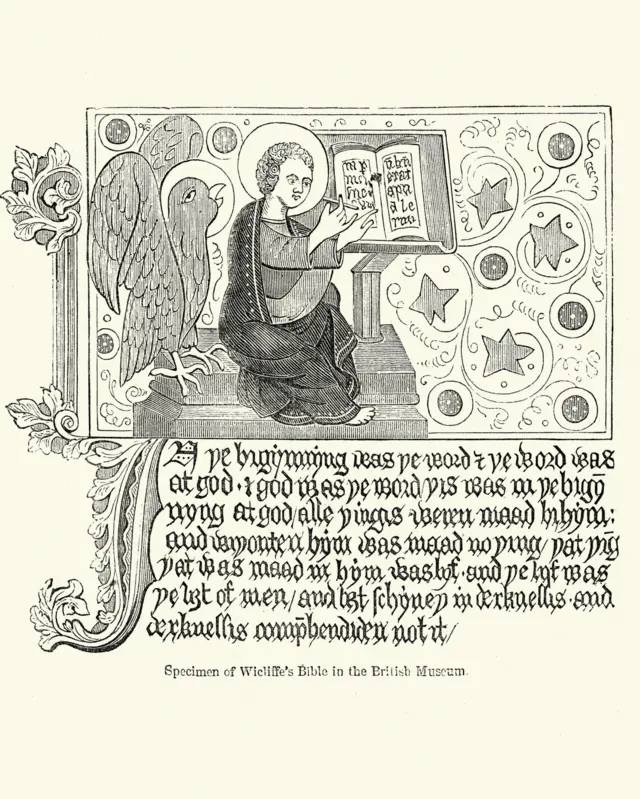 erat
apu
IN ye bigynnyng was ye word ⁊ ye word was
at god · ⁊ god was ye word / yis was in ye bigȳ
nyng at god / alle yingis weren maad bi hym:
and wiyouten hym was maad no ying / yat yīg
yat was maad in hym was lyf · and ye lyf was
ye liȝt of men / and liȝt schyney in derknessis · and
derknessis comp̄hendiden not it /
Specimen of Wicliffe's Bible in the British Museum.